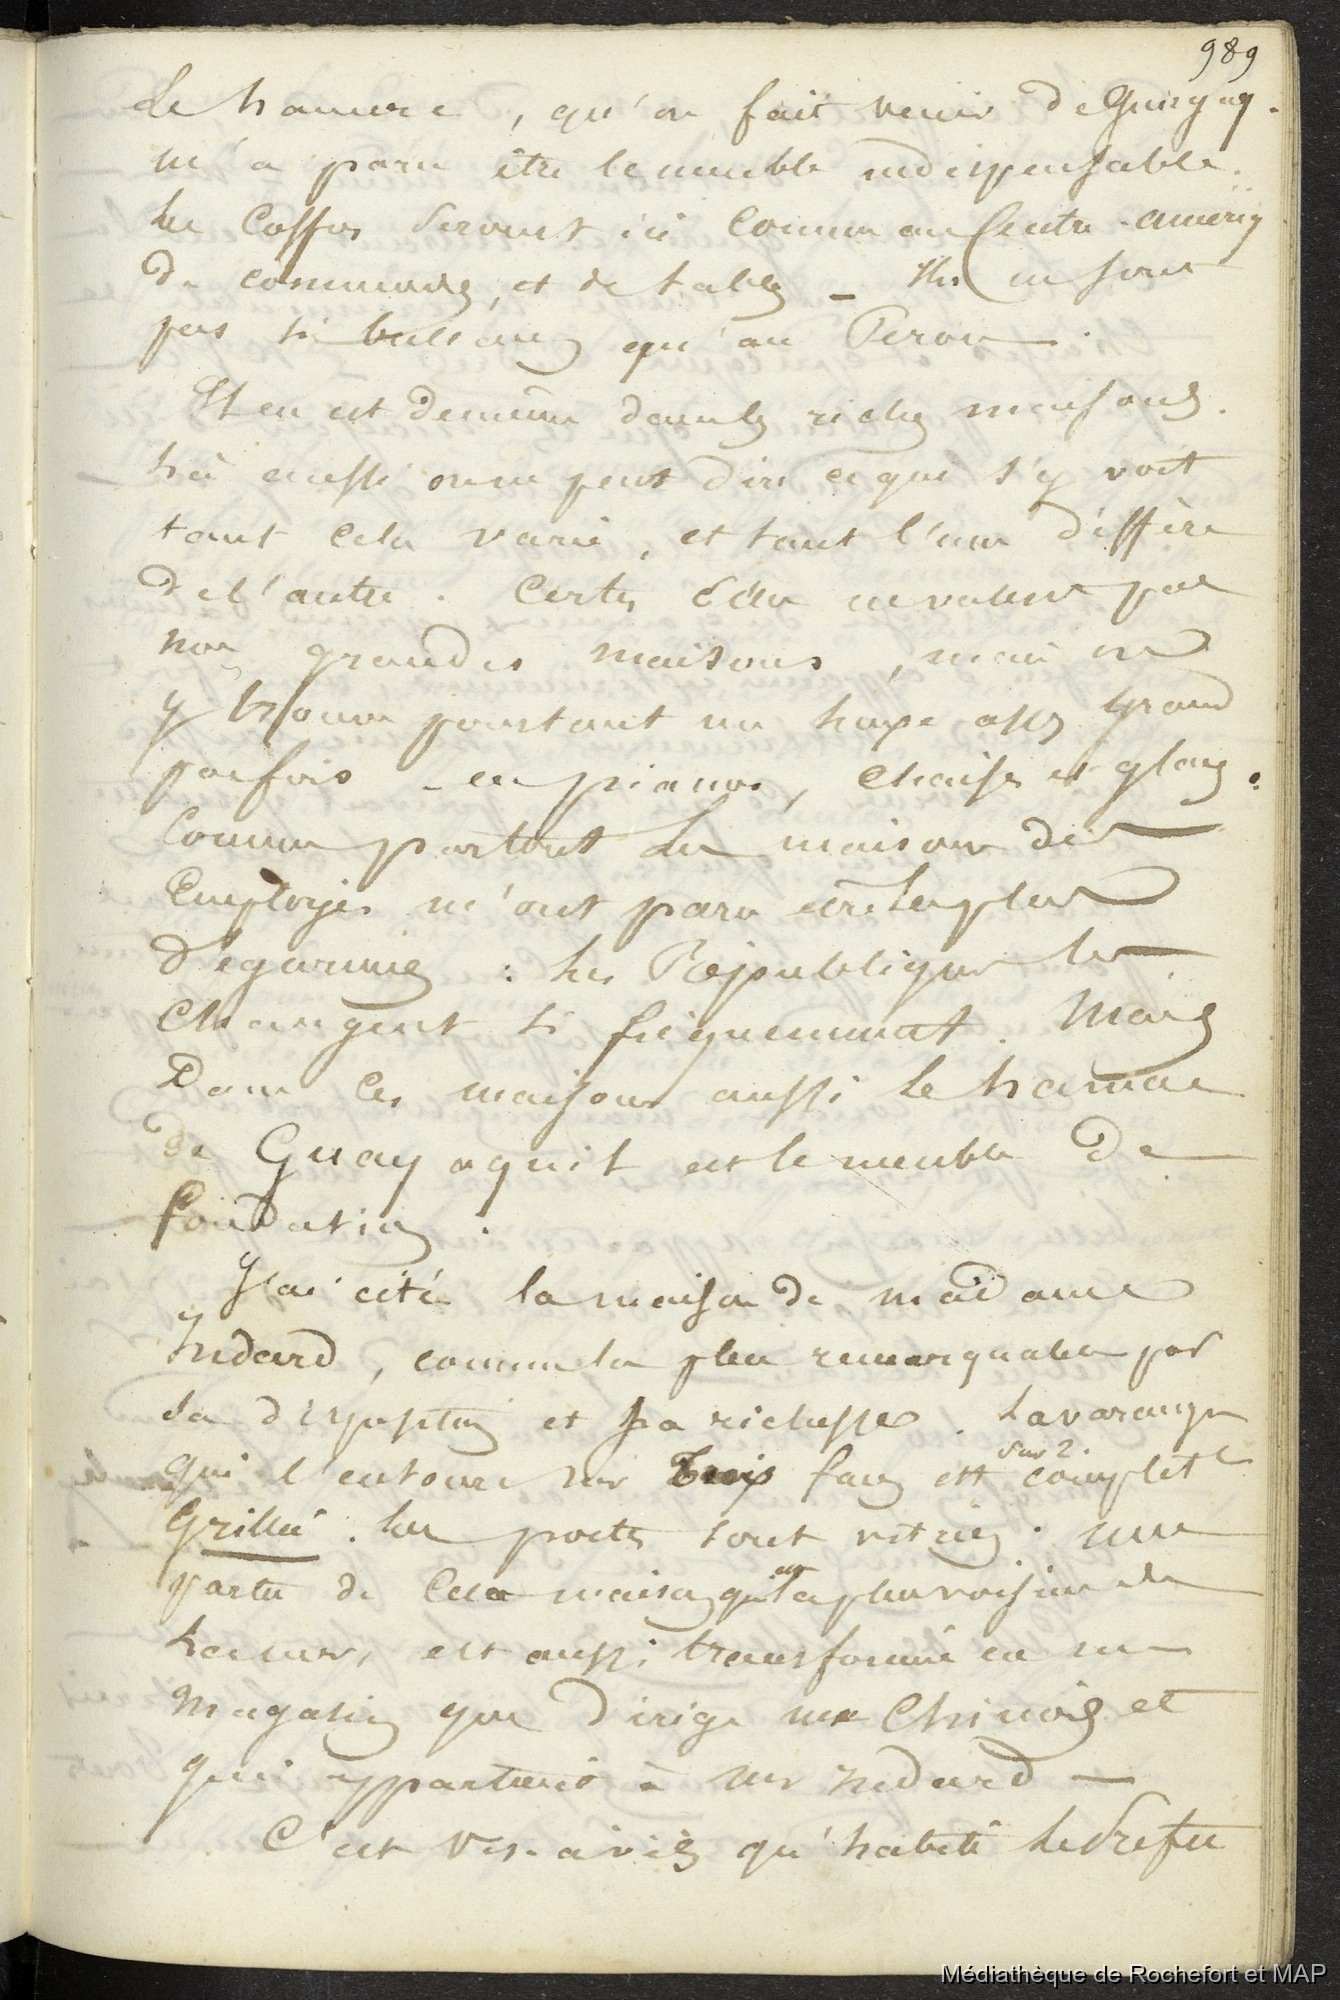 989
Le hamac, qu'on fait venir de
m'a paru être le meuble indispensable.
Les Coffres servent ici comme au Centre-Amériq
de commodes, et de tables _ Ils n'en sont
pas si qu'au Perou.
Il en est de même dans les riches maisons.
Là aussi on ne peut dire ce qui s'y voit
tant cela varie, et tant l'une diffère
de l'autre. Certes elles ne valent pas
nos grandes maisons, mais on
y trouve pourtant un luxe assez grand
parfois _ en pianos, chaises et glaces.
Comme partout les maisons des
Employés m'ont paru être les plus
dégarnies : les Républiques les
changent si fréquemment. Mais
Dans ces maisons aussi le hamac
de Guayaquil est le meuble de
fondation.
J'ai cité la maison de madame
Indard, comme la plus remarquable par
sa disposition et sa richesse. La varangue
qui l'entoure sur trois faces est sur 2. complet
Grillée. Les portes sont vitrées. une
partie de cette maison, qui la plus voisine de
la mer, est aussi transformée en un
Magasin que dirige un Chinois et
qui appartient à Mr Indard —
C'est vis-à-vis qu'habite le Préfet
Médiathèque de Rochefort et MAP